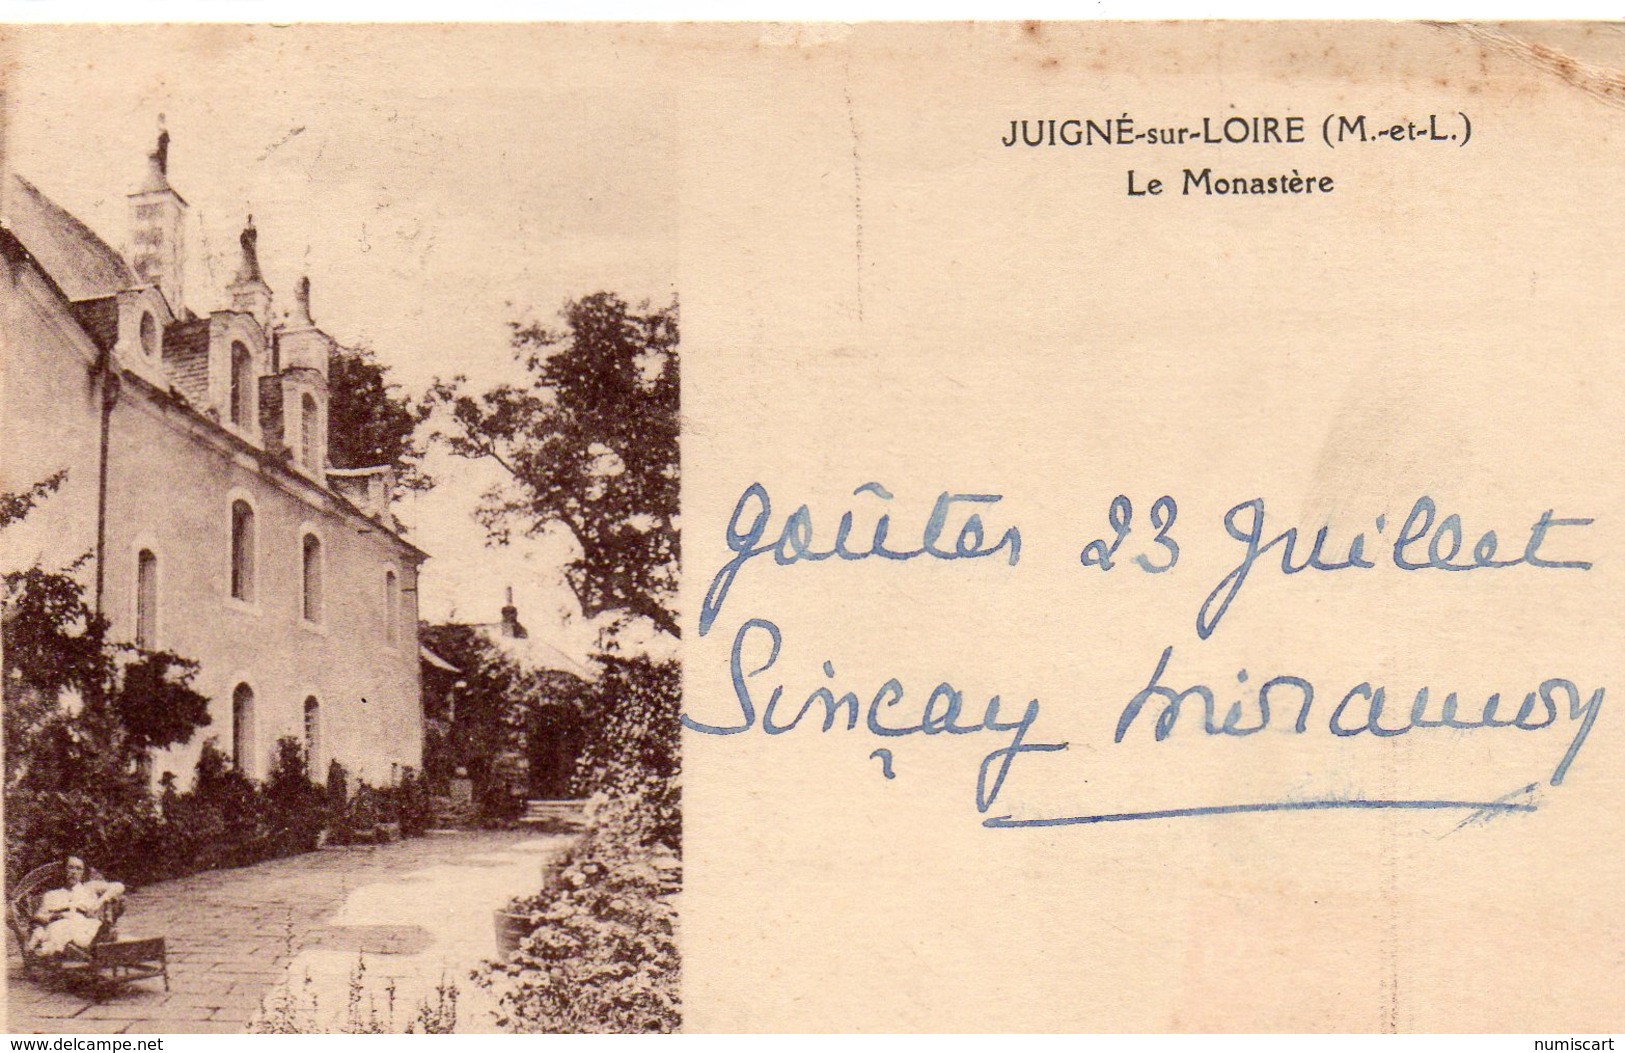 JUIGNÉ-sur-LOIRE (M.-et-L.)
Le Monastère
goûter 23 Juillet
Sinçay
www.delcampe.net
numiscart